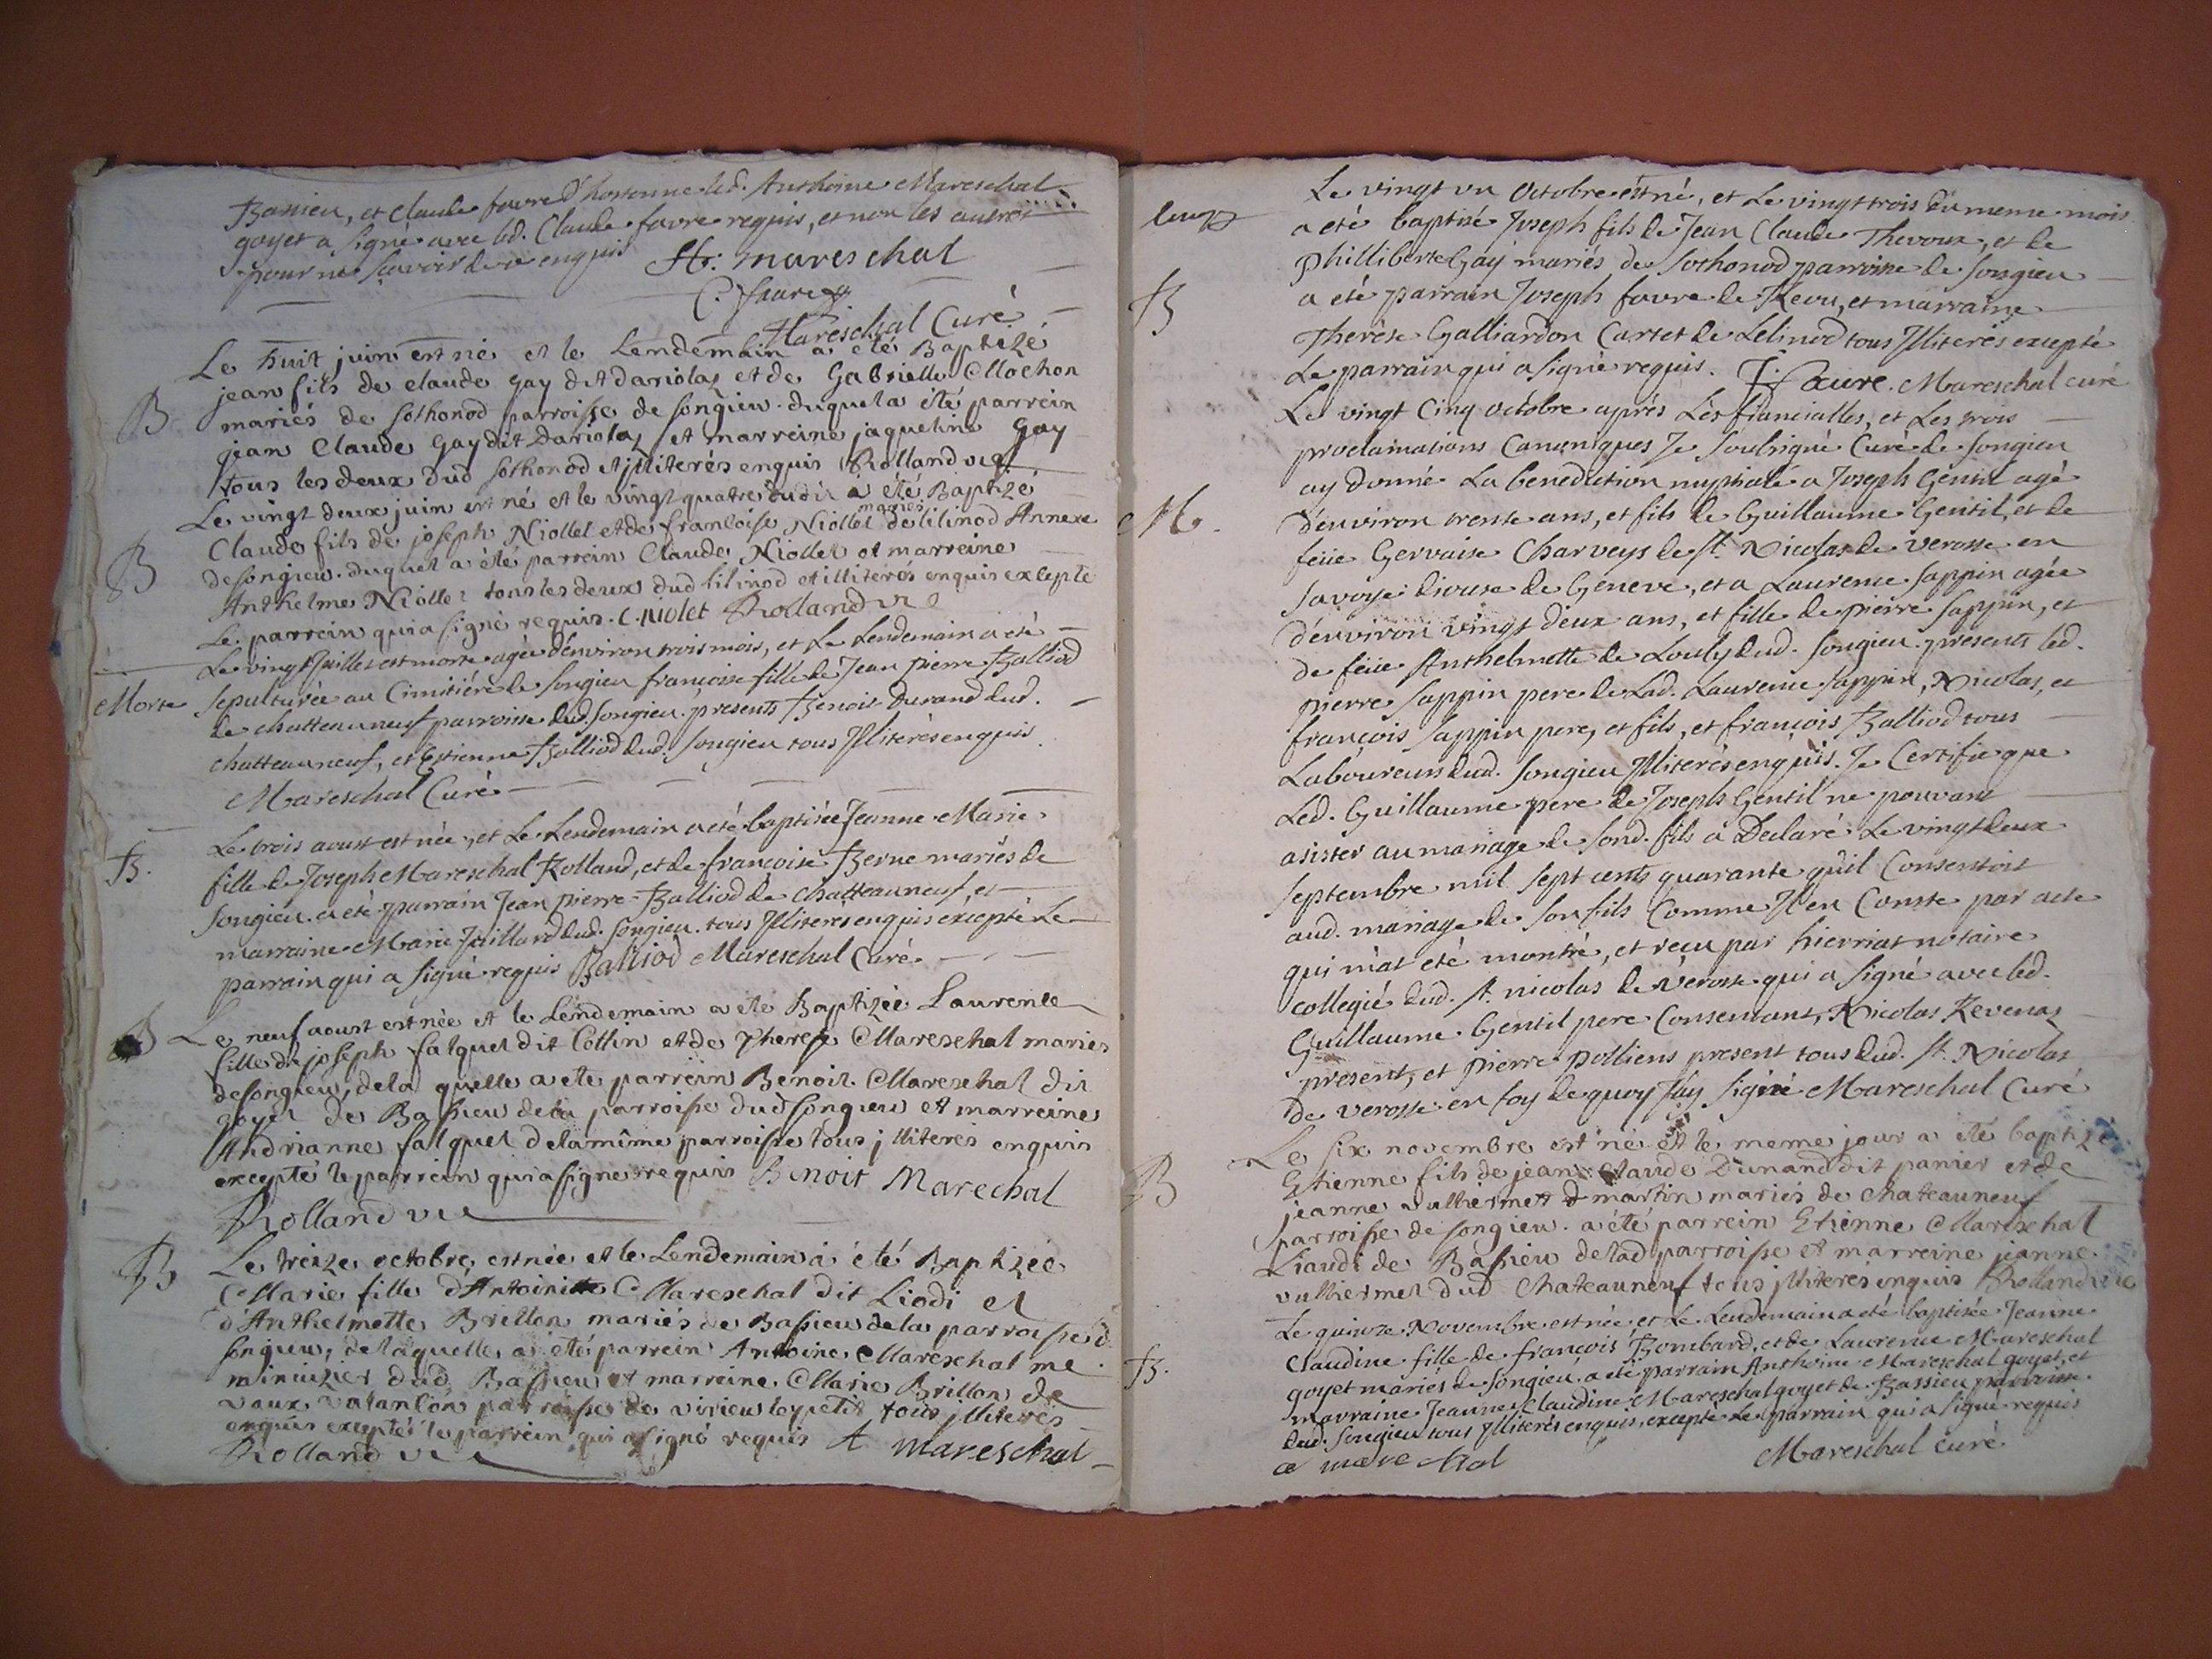 Bassieu, et Claude favre d'hostonne led. Anthoine Mareschal
goyet a signé avec led. Claude favre requis, et non les autres
pour ne scavoir de ce enquis At: mareschal
C. faure
Mareschal Curé
Le huit juin est né et le Lendemain a été Baptizé
jean fils de claude gay dit dariolaz et de Gabrielle Mochon
B mariés de sothonod parroisse de songieu. duquel a été parrein
jean Claude Gay dit Dariolaz et marreine jaqueline Gay
tous les deux dud sothonod et jlliterés enquis Rolland vic
Le vingt deux juin est né et le vingt quatre dudit a été Baptizé
Claude fils de joseph Niollet et de francoise Niollet mariés de lilinod Annexe
B de songieu. duquel a été parrein Claude Niollet et marreine
Anthelme Niollet tous les deux dud lilinod et illiterés enquis excepté
le parrein qui a signé requis. C. Niolet Rolland vic
Le vingt Juillet est morte agée d'environ trois mois, et Le Lendemain a eté
Morte sepulturée au Cimitiére de songieu françoise fille de Jean pierre Balliod
de chatteauneuf parroisse dud. songieu. presents Benoit Durand dud.
chatteauneuf, et Estienne Balliod dud. songieu tous Jlliterés enquis
Mareschal Curé
Le trois aoust est née, et Le Lendemain a eté baptisée Jeanne Marie
B. fille de Joseph Mareschal Rolland, et de françoise Berne mariés de
songieu. a eté parrain Jean pierre Balliod de chatteauneuf, et
marraine Marie Juillard dud. songieu. tous Jlliterés enquis éxcepté Le
parrain qui a signé requis Balliod Mareschal Curé.
B Le neuf aoust est née et le Lendemain a eté Baptizée Laurence
fille de joseph falquet dit Collin et de Therese Mareschal mariés
de songieu, de la quelle a ete parrein Benoit Mareschal dit
goyet de Bassieu de la parroisse dud songieu et marreine
Andrianne falquet de la même parroisse tous jlliteres enquis
excepté le parrein qui a signe requis Benoit Marechal
Rolland vic
B Le treize octobre est née et le Lendemain a été Baptizée
Marie fille d'Antoine Mareschal dit Liodi et
d'Anthelmette Brillon mariés de Bassieu de la parroisse d
songieu, de laquelle a été parrein Antoine Mareschal me
minuizier dud Bassieu et marreine Marie Brillon de
vaux vatanson parroisse de virieu le petit tous jlliterés
enquis excepté le parrein qui a signé requis A mareschal
Rolland vic
Le vingt un Octobre est né, et Le vingt trois du meme mois
a eté baptisé Joseph fils de Jean Claude Thevoux, et de
Philliberte Gay mariés de sothonod parroisse de songieu
B a eté parrain Joseph favre de Revu, et marraine
Therèse Galliardon Cartet de Lilinod tous Jlliterés excepté
Le parrain qui a signé requis. J: faure. Mareschal curé
Le vingt Cinq octobre aprés Les fiancialles, et Les trois
proclamations Canoniques Je soubsigné Curé de songieu
ay donné La benediction nuptiale a Joseph Gentil agé
M. d'environ trente ans, et fils de Guillaume Gentil, et de
feüe Gervaise Charveys de st. Nicolas de verosse en
savoye diocese de Geneve, et a Laurence sappin agée
d'environ vingt deux ans, et fille de pierre sappin, et
de feüe Anthelmette de Louly dud. songieu. presents led.
pierre sappin pere de Lad. Laurence sappin, Nicolas, et
françois sappin pere, et fils, et françois Balliod tous
Laboureurs dud. songieu Jlliterés enquis. Je Certifie que
Led. Guillaume pere de Joseph Gentil ne pouvant
asister au mariage de sond. fils a Declaré Le vingt deux
septembre mil sept cents quarante qu'il Consentoit
aud. mariage de son fils Comme Jl en Conste par acte
qui m'at eté montré, et recu par hierriat notaire
collegié dud. st. nicolas de verosse qui a signé avec led.
Guillaume Gentil pere Consentant, Nicolas Revenaz
present, et pierre polliens present tous dud. st. Nicolas
de verosse en foy de quoy J'ay signé Mareschal Curé
Le six novembre est né et le meme jour a eté baptizé
B Etienne fils de jean claude Dunand dit panier et de
jeanne vulliermet martin mariés de chateauneuf
parroisse de songieu. a été parrein Etienne Mareschal
Liaudi de Bassieu de lad parroisse et marreine jeanne
vulliermet dud Chateauneuf tous jlliterés enquis Rolland vic
Le quinze Novembre est née et Le Lendemain a eté baptisée Jeanne
Claudine fille de françois Bombard, et de Laurence Mareschal
B. goyet mariés de songieu. a eté parrain Anthoine Mareschal goyet, et
marraine Jeanne Claudine Mareschal goyet de Bassieu parroisse
dud. songieu tous Jlliterés enquis, excepté Le parrain qui a signé requis
a mare chal Mareschal curé